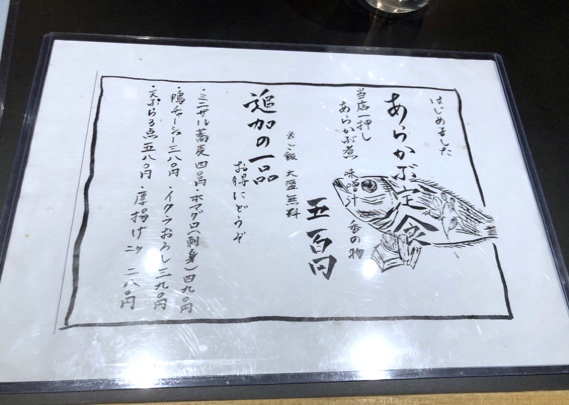 はじめました
あらかぶ定食
当店一押し
あらかぶ煮 味噌汁 香の物
五百円
※ご飯 大盛無料
追加の一品
お得にどうぞ
・ミニザル蕎麦 四〇円・本マグロ(刺身)四九〇円
・鴨チャーシュー三八〇円・イクラおろし二九〇円
・天ぷら3点 五八〇円・厚揚げ 二八〇円